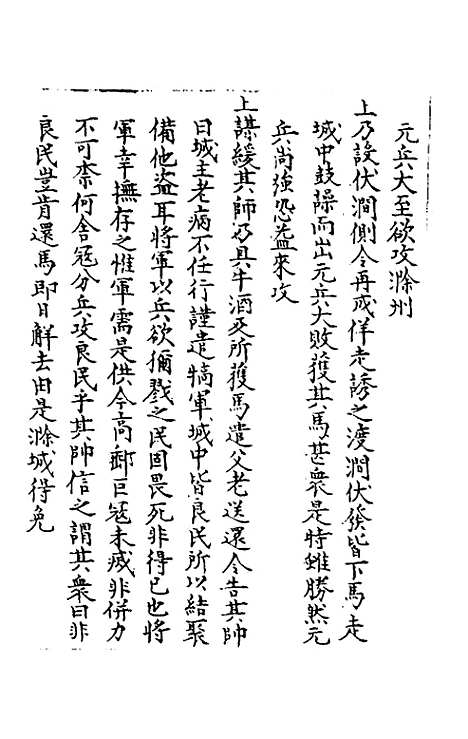 元兵大至欲攻滁州
上乃設伏澗側令再成佯走誘之渡澗伏發皆下馬走
城中鼓譟而出元兵大敗獲其馬甚衆是時雖勝然元
兵尚強恐益來攻
上謀緩其師乃具牛酒及所獲馬遣父老送還令告其帥
曰城主老病不任行謹遣犒軍城中皆良民所以結聚
備他盗耳將軍以兵欲彌戮之民固畏死非得已也將
軍幸撫存之惟軍需是供今高郵巨冦未㓕非併力
不可柰何舍冦分兵攻良民乎其帥信之謂其衆曰非
良民豈肯還馬即日解去由是滁城得免